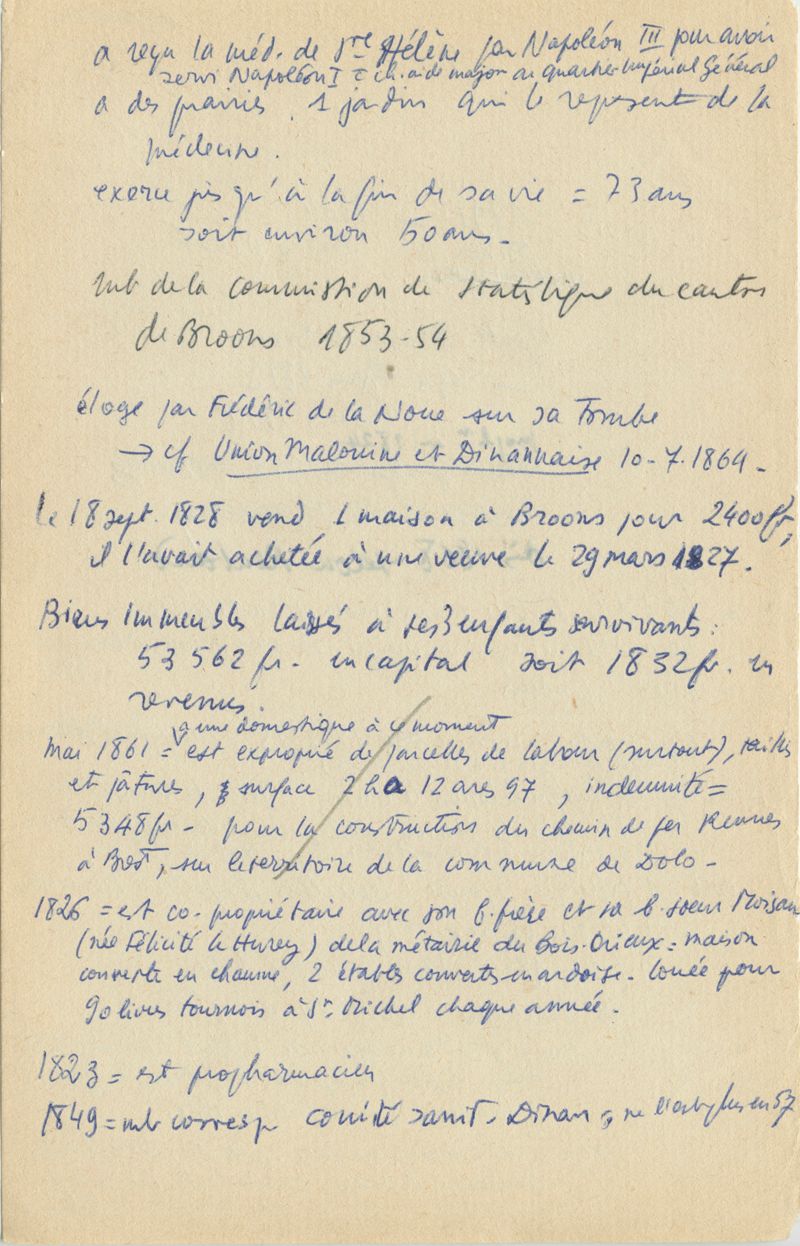 a reçu la méd. de Ste Hélène par Napoléon III pour avoir
servi Napoléon I = ch. aide major au quartier Impérial Général
a des prairies, 1 jardin qui le reposent de la
médecine.
exerce jusqu'à la fin de sa vie = 73 ans
soit environ 50 ans -
mb de la commission de statistique du canton
de Broons 1853-54
éloge par Frédéric de la Noue sur sa Tombe
→ cf Union Malouine et Dinannaise 10-7-1864 -
le 18 sept. 1828 vend 1 maison à Broons pour 2400 fr,
il l'avait achetée à une veuve le 29 mars 1827.
Biens Immeubles laissés à ses 3 enfants survivants :
53 562 fr. en capital soit 1832 fr. en
revenus.
a une domestique à ce moment
Mai 1861 = est exproprié de parcelles de labour (surtout), taillis
et pâtures, surface 2 ha 12 ares 97, indemnité =
5348 fr - pour la construction du chemin de fer Rennes
à Brest, sur le territoire de la commune de Dolo -
1826 = est co-propriétaire avec son b. frère et sa b. soeur Moisan
(née Félicité le Hurey) de la métairie du bois-Orieux = maison
couverte en chaume, 2 étables couverts en ardoise. louée pour
90 livres tournois à St. Michel chaque année.
1823 = est propharmacien
1849 = mb corresp comité sanit. Dinan, ne l'est plus en 57